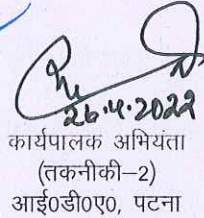 26.4.2022
कार्यपालक अभियंता
(तकनीकी-2)
आई0डी0ए0, पटना